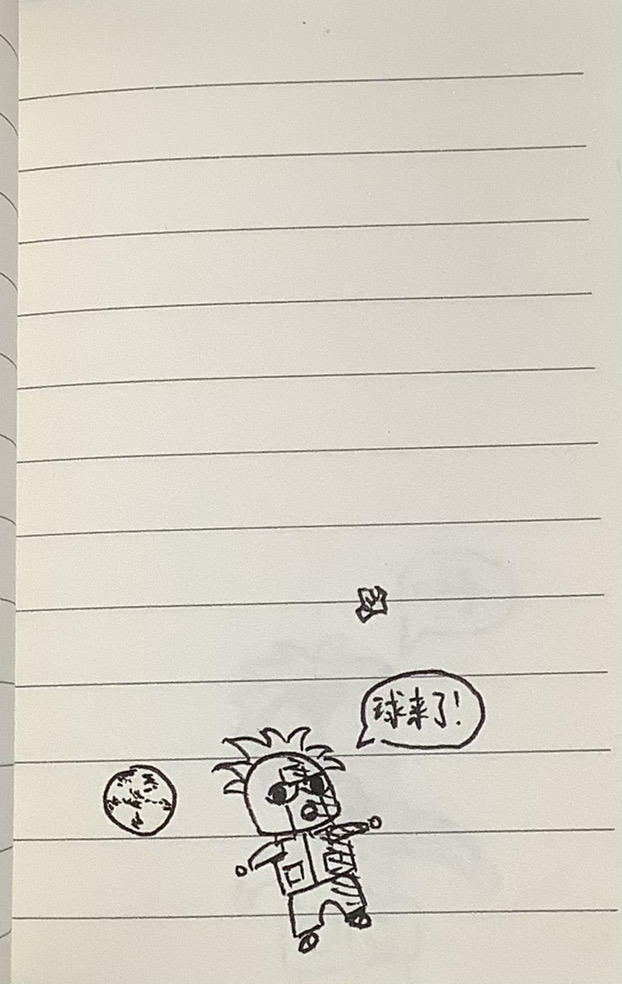 球来了!